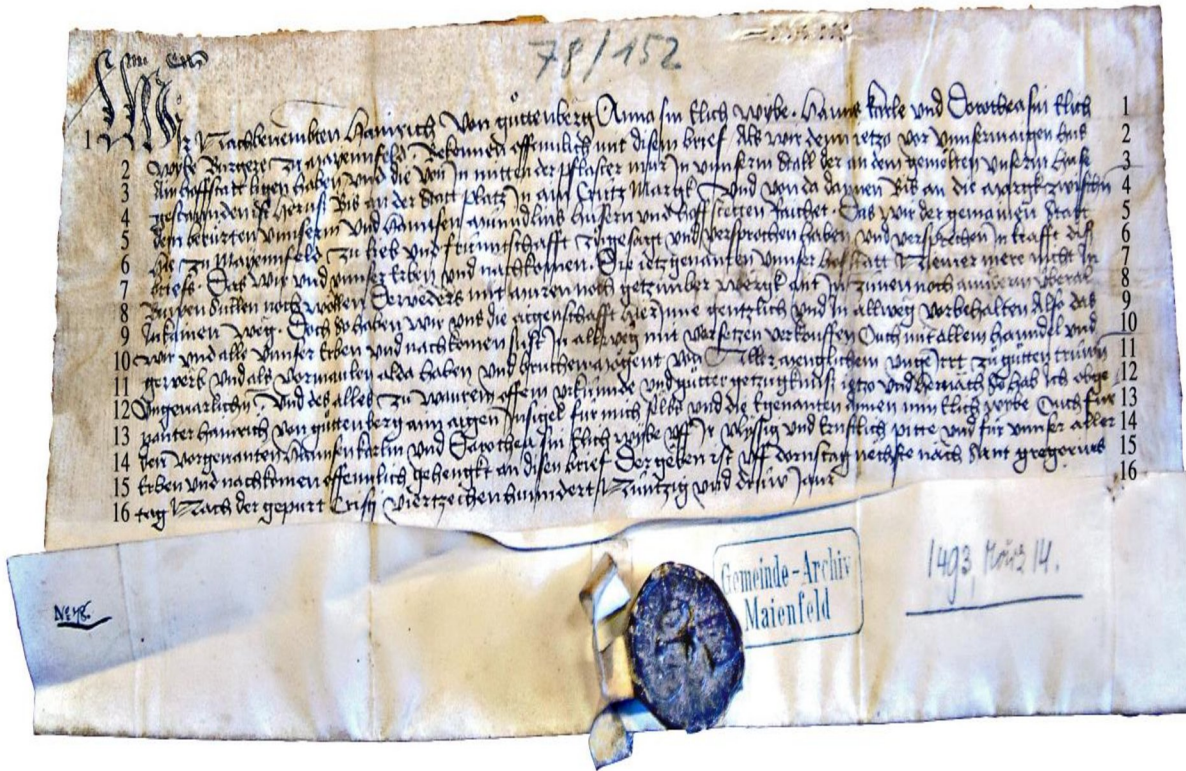 78/152
1 Wir Nachbenempten Hainrich von gůttenberg Anna sin Elich wybe. Hanns karle und Dorothea sin Elich 1
2 wybe Burgere zu Mayennfeld Bekennend offennlich mit disem brief. Als wir denn ietzo vor unnserm aigen hus 2
3 Ain hoffstatt ligen haben und die von In mitten der pflaster mur In unnserm Stall der an dem gemelten unserm huse 3
4 heruß Bis an der Statt platz In ain Crütz Margk und von da dannen Bis an die margk zwischen 4
5 dem berürten unnserm und Hannsen husern und hoffstetten Raichet. Das wir der gemainen Statt 5
6 hie zu Mayennfeld zu lieb und fründtschafft zugesagt und versprochen haben und versprechen In krafft diß 6
7 briefs. Das wir und unnser Erben und nachkomen. Die ietzgenanten unnser hofstatt Niemer mere nicht In 7
8 Buwen sullen noch wollen Derweders mit muren noch getzimber wergk mit zünen noch annderm überal 8
9 Inkainen weg. Doch so haben wir uns die aigenschafft hierInne gentzlich und In allweg vorbehalten Also das 9
10 wir und alle unnser Erben und nachkomen sust In allweg mit versetzen verkouffen Ouch mit allem hanndel und 10
11 gewerb und als vormaulen alda haben und bruchen mügent von Aller menglichem ungeIrrt zu gůtten trüwen 11
12 Ungevarlichen. Und des alles zu waurem offem urkunde und gůtter getzügknüß ietzo und hernach So hab Ich obge 12
13 nanter Hainrich von gůttenberg min aigen Insigel für mich selbs und die Egenanten Annen min Elich wybe Ouch für 13
14 den vorgenanten Hannsen karlin und Dorothea sin Elich wybe uff Ir flyssig und ernstlich pitte und für unnser aller 14
15 Erben und nachkomen offennlich gehengkt an disen brief Der geben ist uff dornstag nechste nach Sant gregorius 15
16 tag Nach der gepurt Cristi viertzechenhunndert Nüntzig und drüw Jaur 16
No 78.
Gemeinde-Archiv
Maienfeld
1493, März 14.